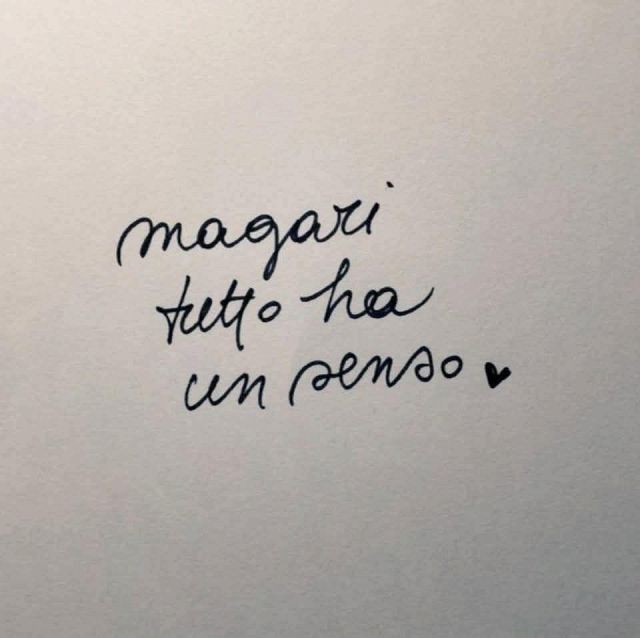 magari
tutto ha
un senso ♥